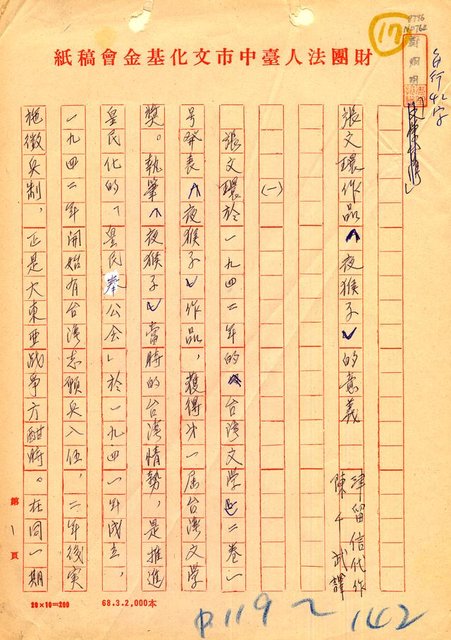 財團法人臺中市文化基金會稿紙
17
每行42字
張文環作品︿夜猴子﹀的意義
津留信代作
陳千武譯
(一)
張文環於一九四二年的︽台灣文學︾二卷一
号發表︿夜猴子﹀作品，獲得才一屆台灣文學
獎。執筆︿夜猴子﹀當時的台灣情勢，是推進
皇民化的「皇民奉公会」於一九四一年成立，
一九四二年開始有台湾志願兵入伍，二年後実
施徵兵制，正是大東亜战爭方酣時。在同一期
第1頁
20×10=200
68.3.2,000本
P119~142